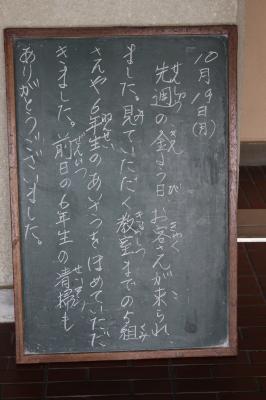 10月19日(月)
先週の金よう日 お客さんが来られ
ました。見ていただく教室までの5組
さんや6年生のあいさつをほめていただ
きました。前日の6年生の清掃も
ありがとうございました。